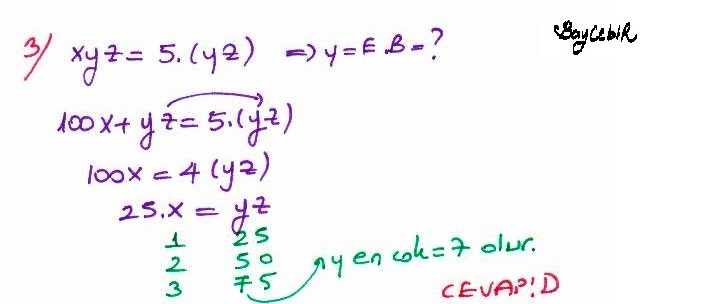 BayCebiR
3) xyz = 5.(yz) => y = E.B = ?
100x + yz = 5.(yz)
100x = 4(yz)
25.x = yz
1 25
2 50
3 75 y en çok = 7 olur.
CEVAP: D